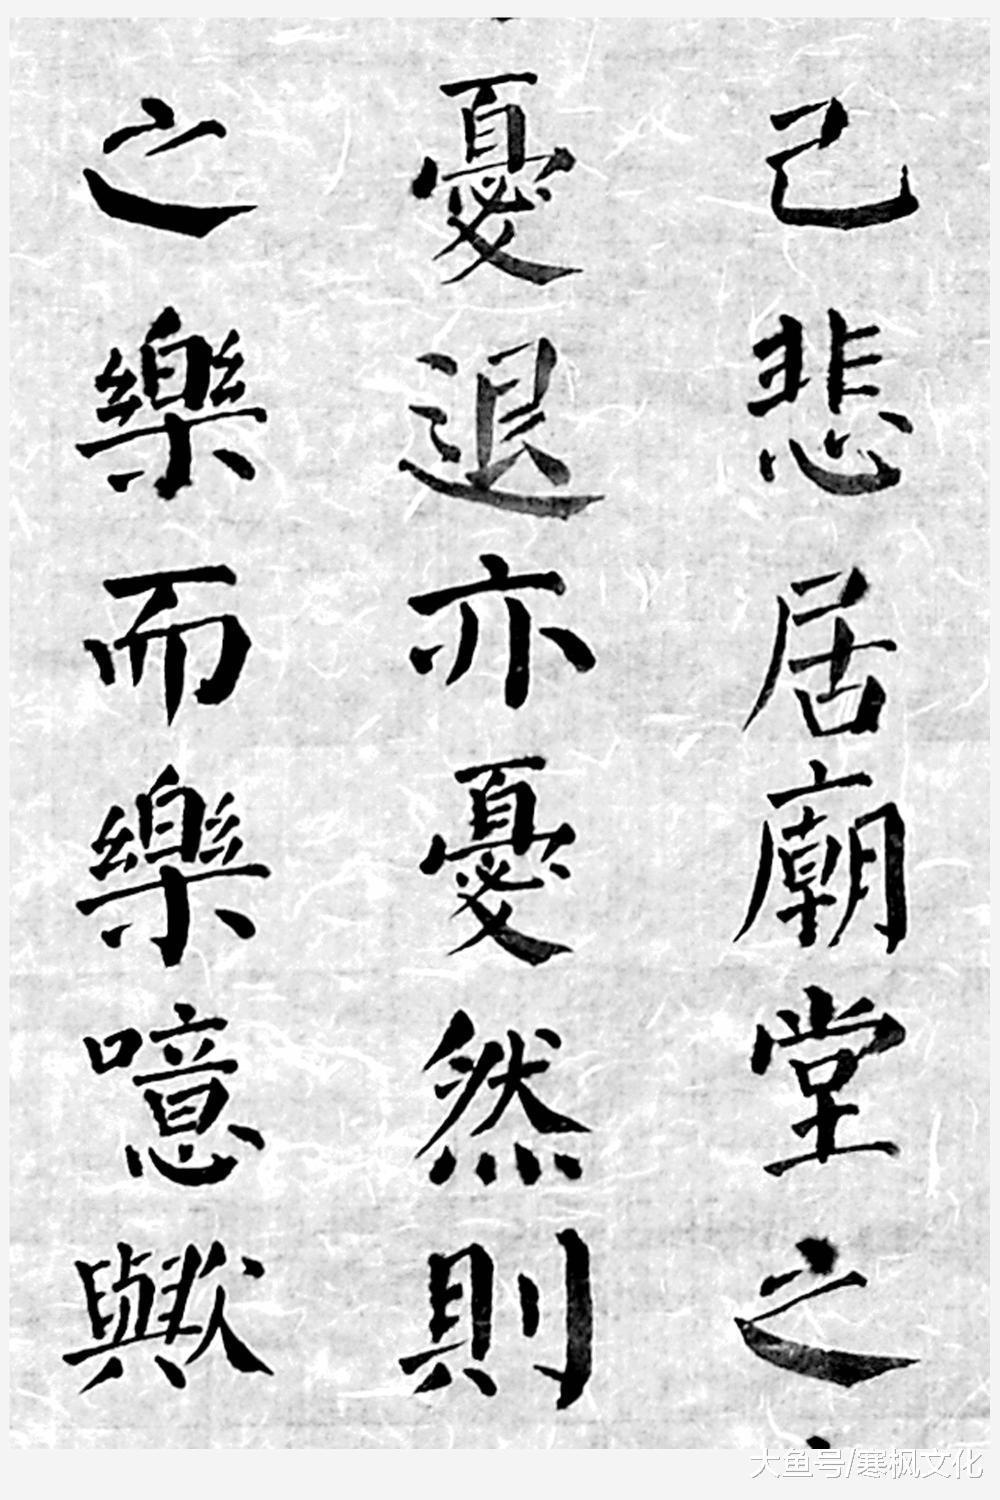 己悲居廟堂之
憂退亦憂然則
之樂而樂噫歟
大鱼号/寒枫文化